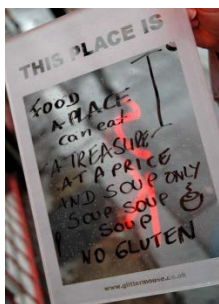 THIS PLACE IS
FOOD
A PLACE I
can eat
A TREASURE
AT A PRICE
AND SOUP ONLY
SOUP SOUP
SOUP
NO GLUTEN
www.glittermouse.co.uk